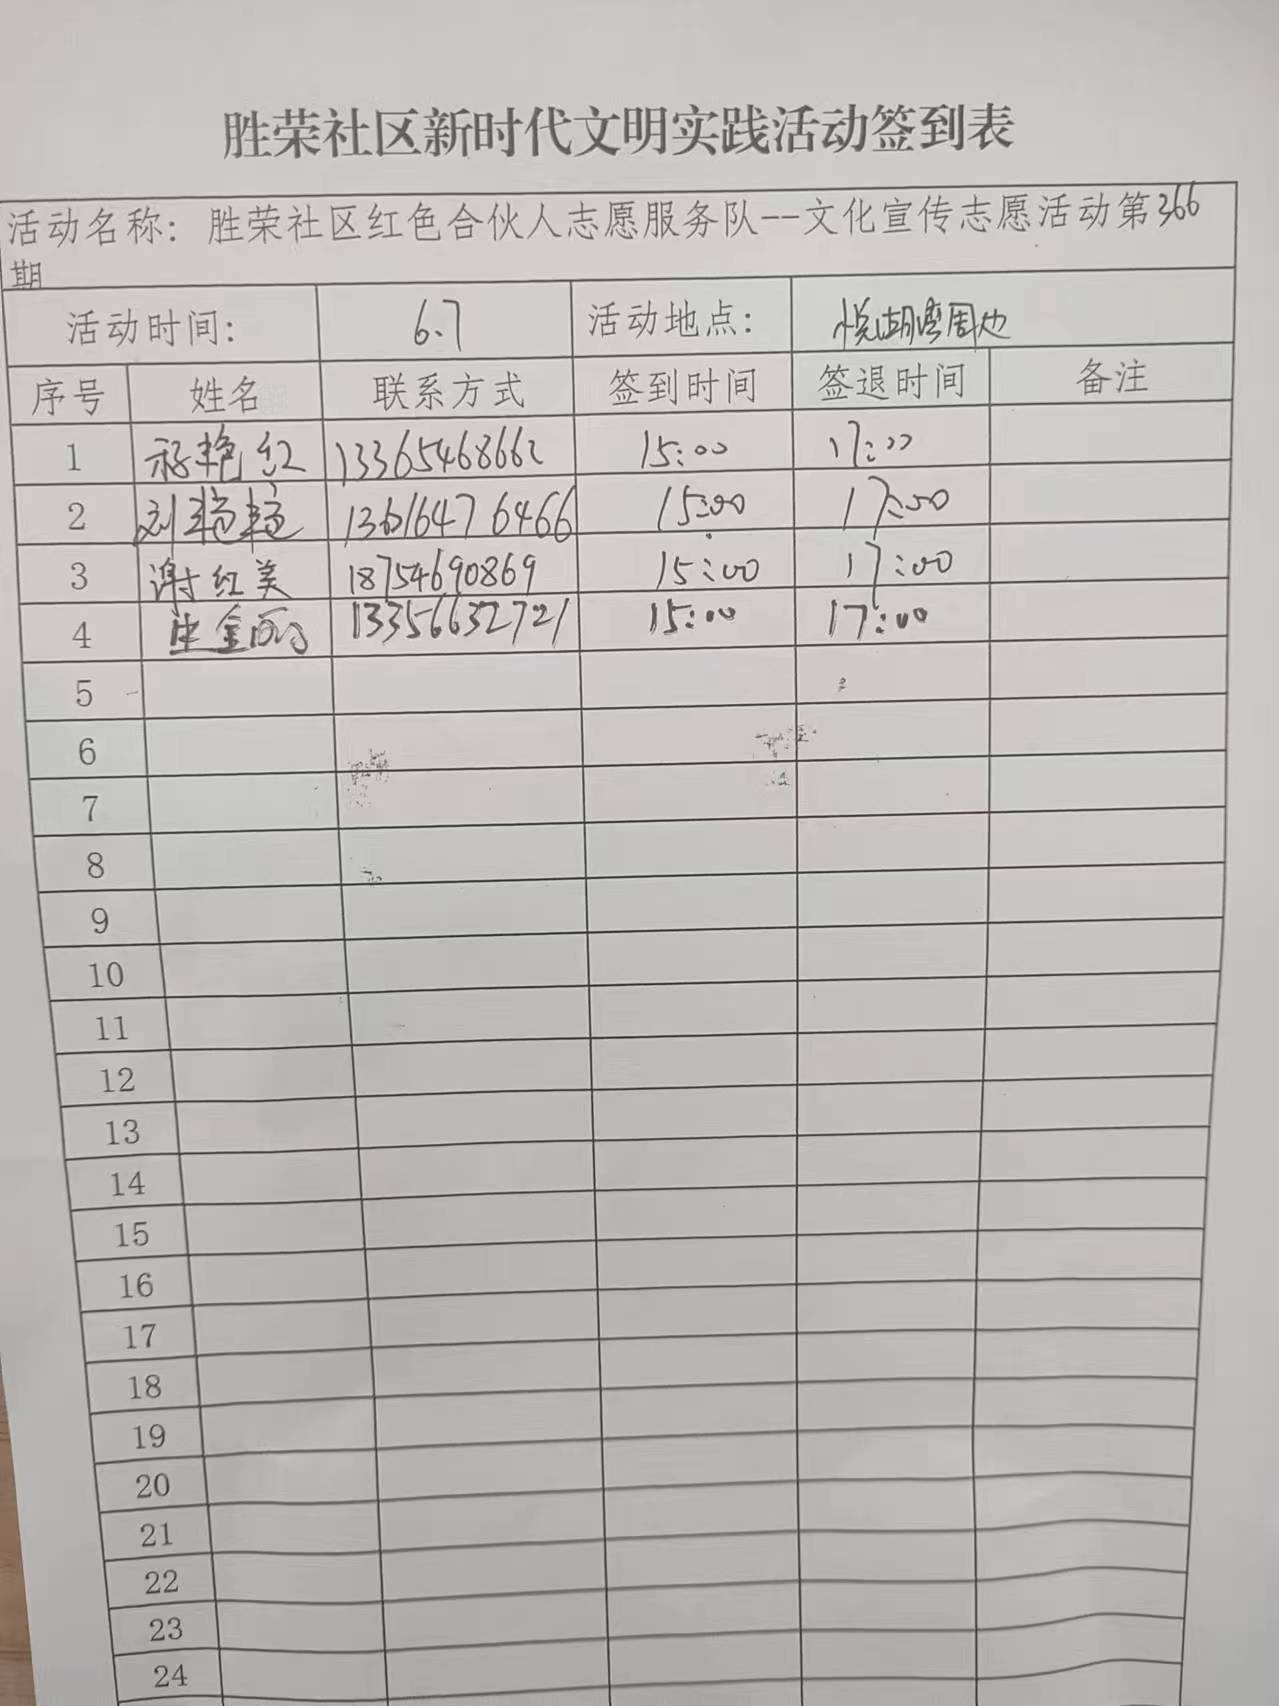 胜荣社区新时代文明实践活动签到表
活动名称：胜荣社区红色合伙人志愿服务队--文化宣传志愿活动第366
期
活动时间： 6.7 活动地点： 悦湖湾周边
序号 姓名 联系方式 签到时间 签退时间 备注
1 艳红 13365468662 15:00 17:00
2 刘艳艳 13616476466 15:00 17:00
3 谢红美 18754690869 15:00 17:00
4 金 13356632721 15:00 17:00
5
6
7
8
9
10
11
12
13
14
15
16
17
18
19
20
21
22
23
24